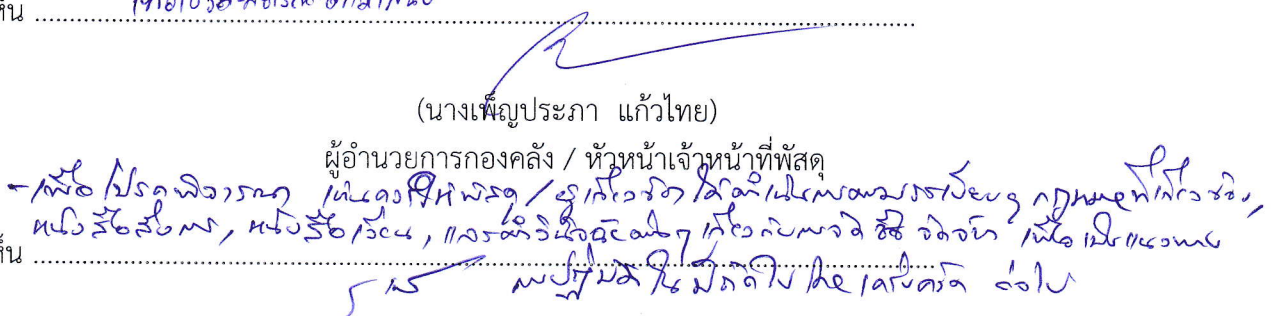 ห็น เพื่อโปรดพิจารณา
(นางเพ็ญประภา แก้วไทย)
ผู้อำนวยการกองคลัง / หัวหน้าเจ้าหน้าที่พัสดุ
- เพื่อโปรดพิจารณา เห็นควรให้พัสดุ/ผู้เกี่ยวข้อง ได้ดำเนินการตามระเบียบฯ กฎหมายที่เกี่ยวข้อง,
หนังสือสั่งการ, หนังสือเวียน, และคำวินิจฉัยต่างๆ เกี่ยวกับการจัดซื้อ จัดจ้าง เพื่อเป็นแนวทาง
ห็น
การปฏิบัติในปีถัดไป โดยเคร่งครัด ต่อไป